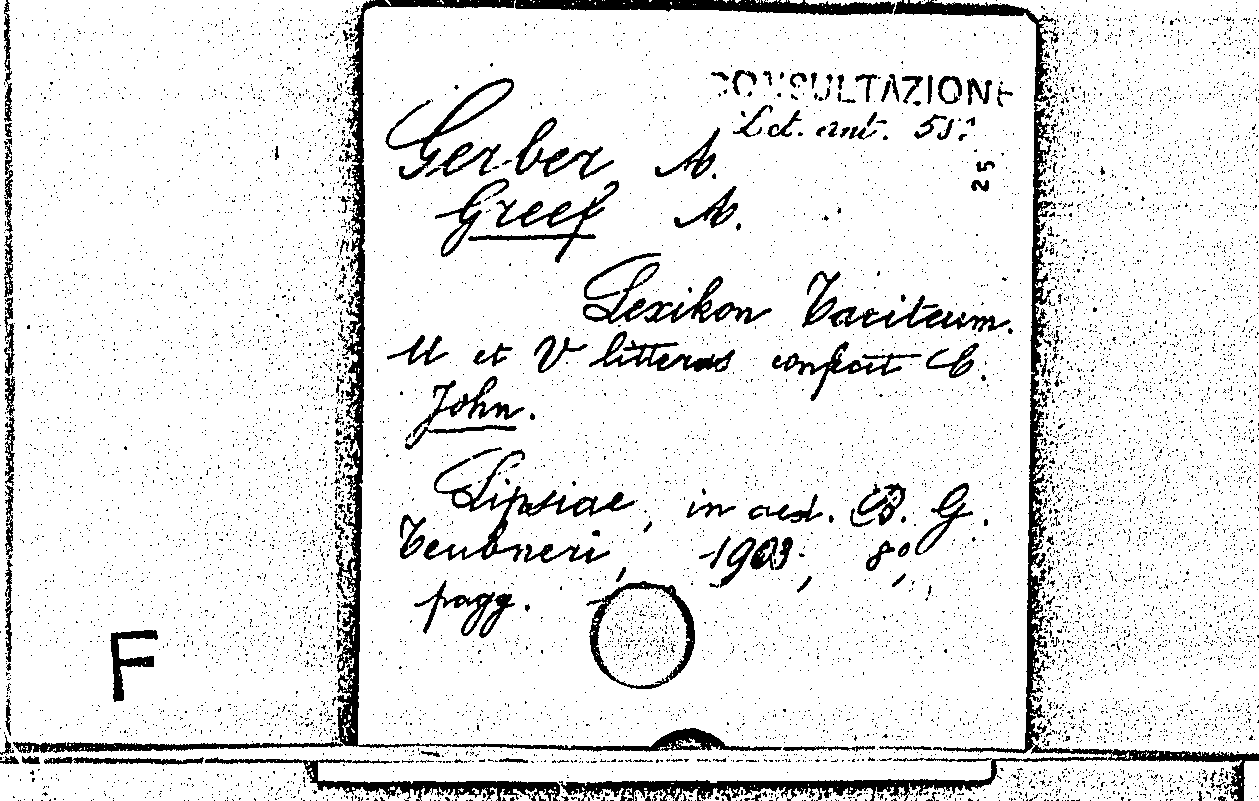 CONSULTAZIONE
Lct. ant. 55.
25
Gerber A.
Greef A.
Lexikon Taciteum.
U et V litteras confecit C.
John.
Lipsiae, in aed. B. G.
Teubneri, 1903, 8°,
pagg.
F